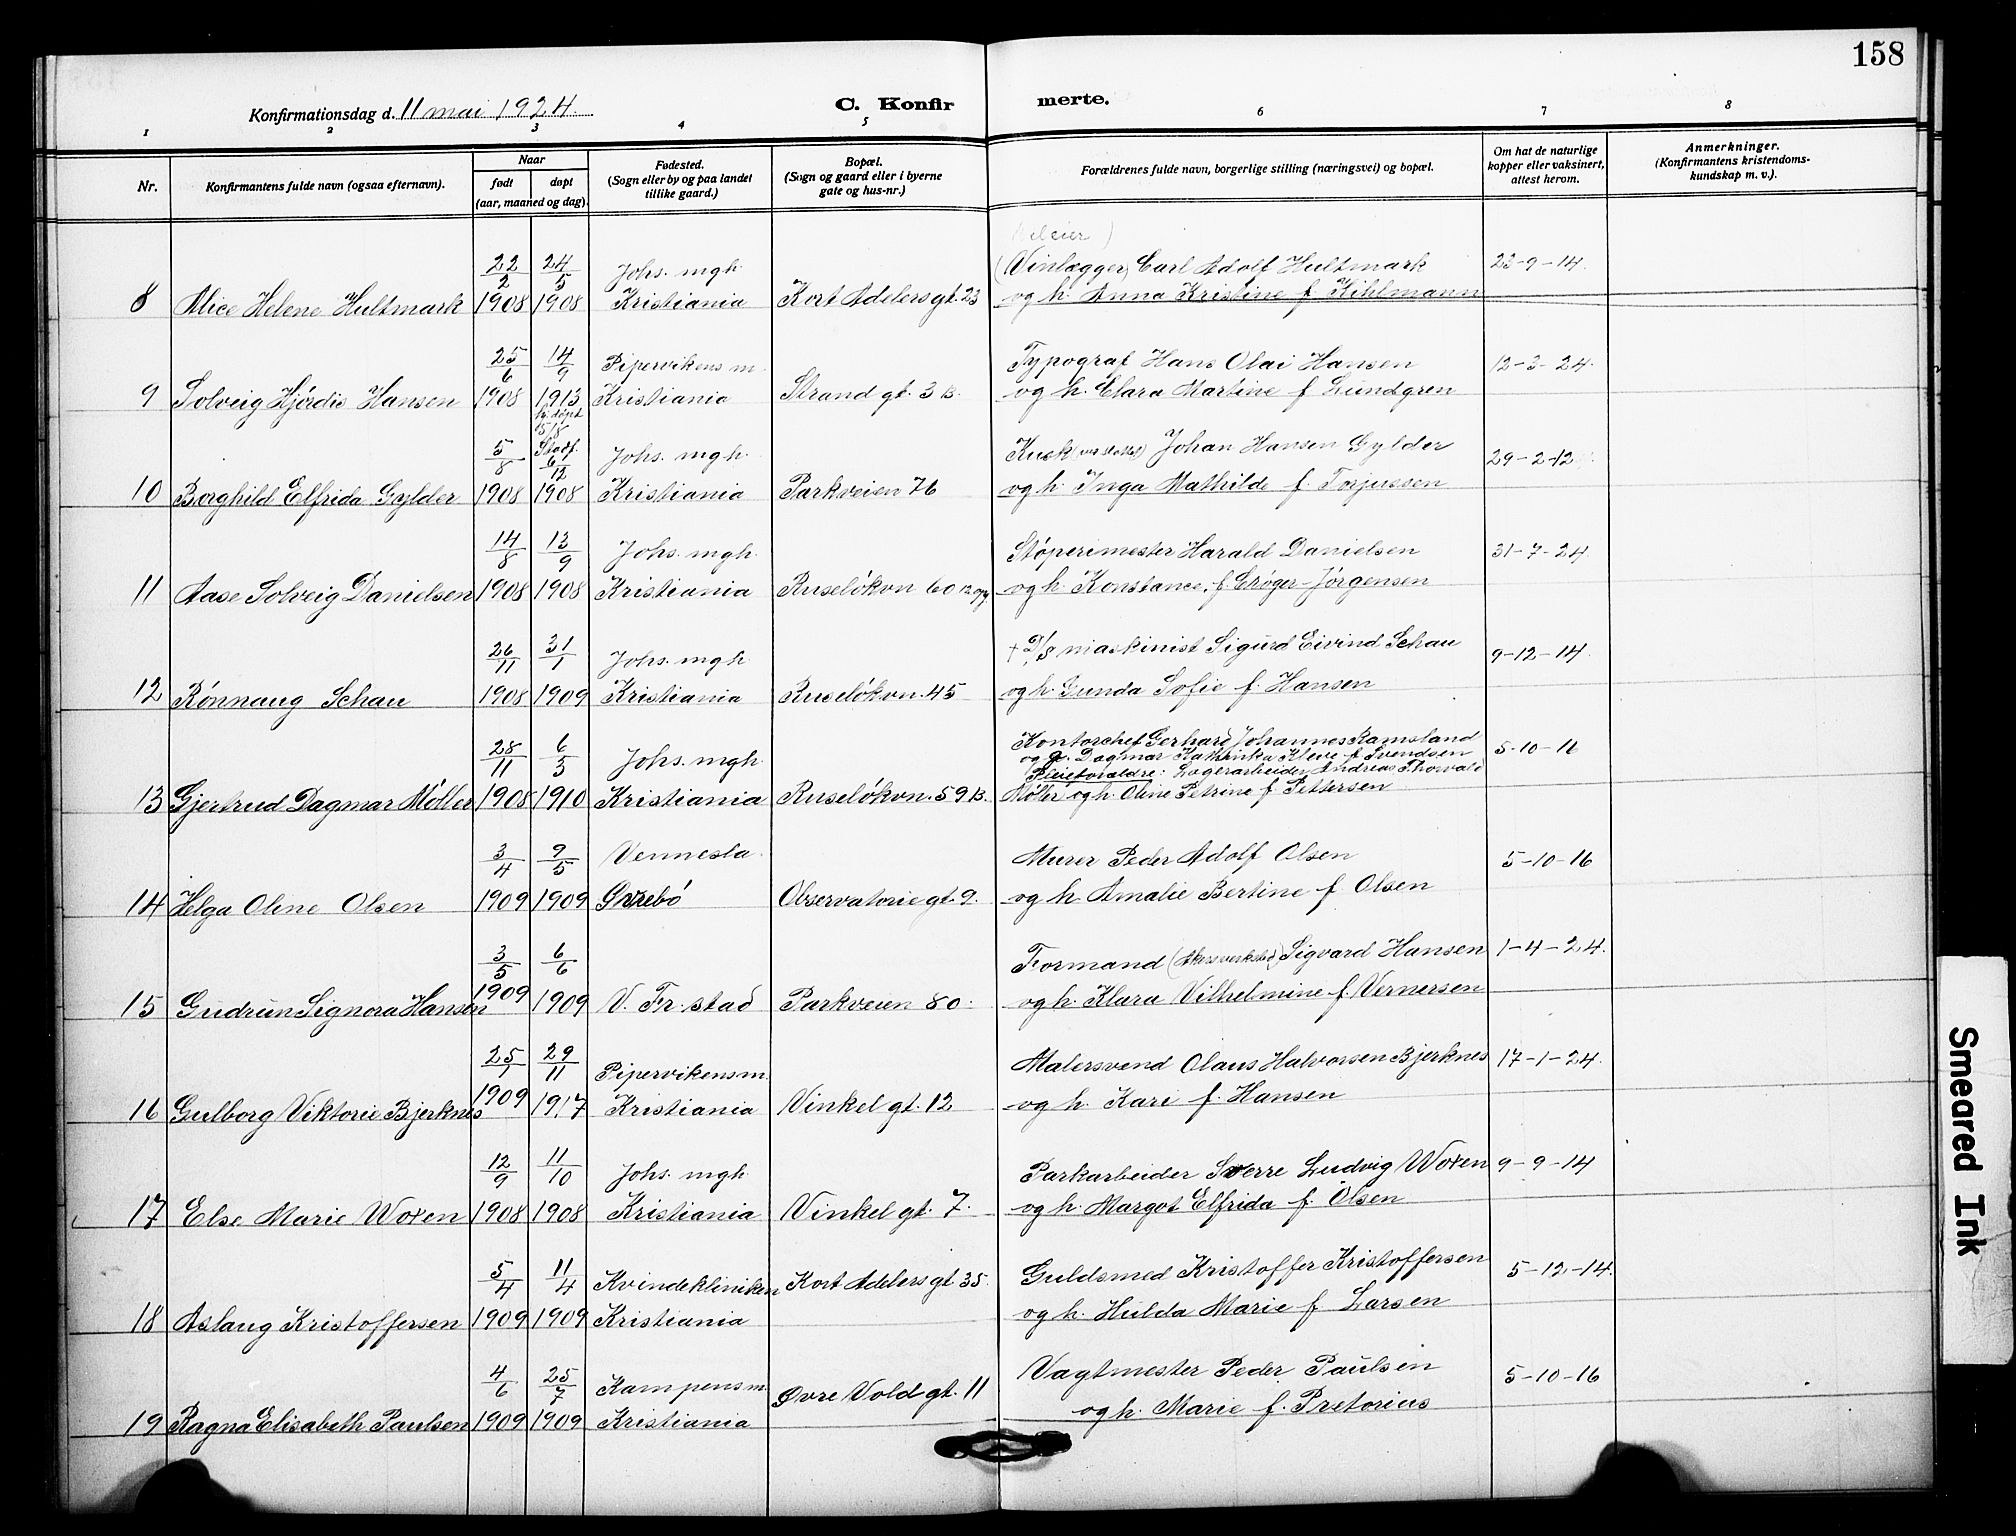 158
Konfirmationsdag d. 11 mai 1924
C. Konfir merte.
1 2 3 4 5 6 7 8
Nr.
Konfirmantens fulde navn (ogsaa efternavn).
Naar
født døpt
(aar, maaned og dag).
Fødested.
(Sogn eller by og paa landet
tillike gaard.)
Bopæl.
(Sogn og gaard eller i byerne
gate og hus-nr.)
Forældrenes fulde navn, borgerlige stilling (næringsvei) og bopæl.
Om hat de naturlige
kopper eller vaksinert,
attest herom.
Anmerkninger.
(Konfirmantens kristendoms-
kundskap m. v.).
22/2 24/5 Johs. mgh. (Vinlægger) Carl Adolf Hultmark 23-9-14.
8 Alice Helene Hultmark 1908 1908 Kristiania Kort Adelersgt. 23 og h. Anna Kristine f. Kihlmann
25/6 14/9 Pipervikens m. Typograf Hans Olai Hansen 12-3-24.
9 Solveig Hjørdis Hansen 1908 1913 Kristiania Strand gt. 3 B. og h. Clara Martine f. Lundgren
hj. døpt
15/8
5/8 Stadf. 6/12 Johs. mgh. Kusk Johan Hansen Gylder 29-2-12
10 Borghild Elfrida Gylder 1908 1908 Kristiania Parkveien 76 og h. Inga Mathilde f. Torjussen
14/8 13/9 Johs. mgh. Støperimester Harald Danielsen 31-7-24
11 Aase Solveig Danielsen 1908 1908 Kristiania Ruseløkvn 60 og h. Konstance f. Grøger-Jørgensen
26/11 31/1 Johs. mgh. † D/S maskinist Sigurd Eivind Schau 9-12-14.
12 Rønnaug Schau 1908 1909 Kristiania Ruseløkvn. 45 og h. Gunda Sofie f. Hansen
28/11 6/3 Johs. mgh. Kontorchef Gerhard Johannes Ramsland 5-10-16
og g. Dagmar Kathinka Kleve f. Svendsen
Pleieforældre: Lagerarbeider Andreas Thorvald
13 Gjertrud Dagmar Møller 1908 1910 Kristiania Ruseløkvn. 59 B. Møller og h. Oline Petrine f. Pettersen
3/4 9/5 Vennesla. Murer Peder Adolf Olsen 5-10-16
14 Helga Oline Olsen 1909 1909 Grovebø Observatorie gt. 9. og h. Amalie Bertine f. Olsen
3/5 6/6 Formand (Akersverksted) Sigvard Hansen 1-4-24.
15 Gudrun Signora Hansen 1909 1909 V. Fr. stad Parkveien 80. og h. Klara Vilhelmine f. Vernersen
25/1 29/11 Pipervikens m. Malersvend Olaus Halvorsen Bjerknes 17-1-24.
16 Gulborg Viktorie Bjerknes 1909 1917 Kristiania Vinkel gt. 12 og h. Kari f. Hansen
12/9 11/10 Johs. mgh. Parkarbeider Sverre Ludvig Woxen 9-9-14
17 Else Marie Woxen 1908 1908 Kristiania Vinkel gt. 7. og h. Margot Elfrida f. Olsen
5/4 11/4 Kvindekliniken Kort Adelersgt. 35. Guldsmed Kristoffer Kristoffersen 5-12-14.
18 Aslaug Kristoffersen 1909 1909 Kristiania og h. Hulda Marie f. Larsen
4/6 25/7 Kampens m. Øvre Vold gt. 11 Vagtmester Peder Paulsen 5-10-16
19 Ragna Elisabeth Paulsen 1909 1909 Kristiania og h. Marie f. Pretorius
Smeared Ink